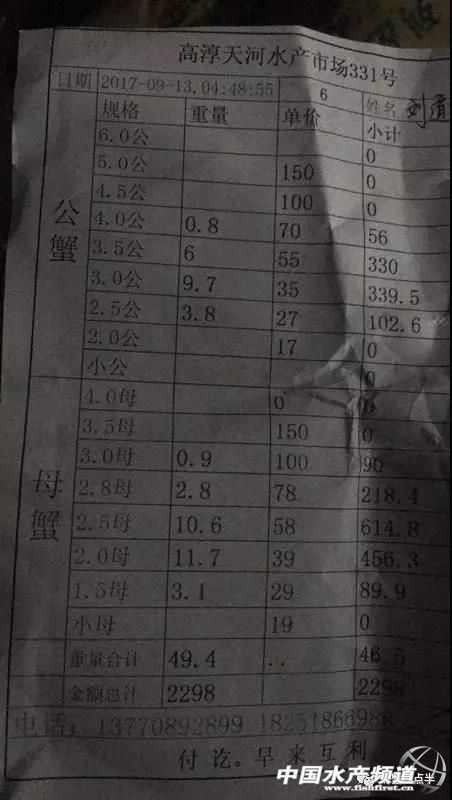 高淳天河水产市场331号
日期 2017-09-13,04:48:55 6 姓名 刘
规格 重量 单价 小计
公蟹
6.0公 0
5.0公 150 0
4.5公 100 0
4.0公 0.8 70 56
3.5公 6 55 330
3.0公 9.7 35 339.5
2.5公 3.8 27 102.6
2.0公 17 0
小公 0
母蟹
4.0母 0 0
3.5母 150 0
3.0母 0.9 100 90
2.8母 2.8 78 218.4
2.5母 10.6 58 614.8
2.0母 11.7 39 456.3
1.5母 3.1 29 89.9
小母 19 0
重量合计 49.4 .. 46.5
金额总计 2298 2298
电话: 13770892899
付讫。早来互利
中国水产频道
www.fishfirst.cn
点半